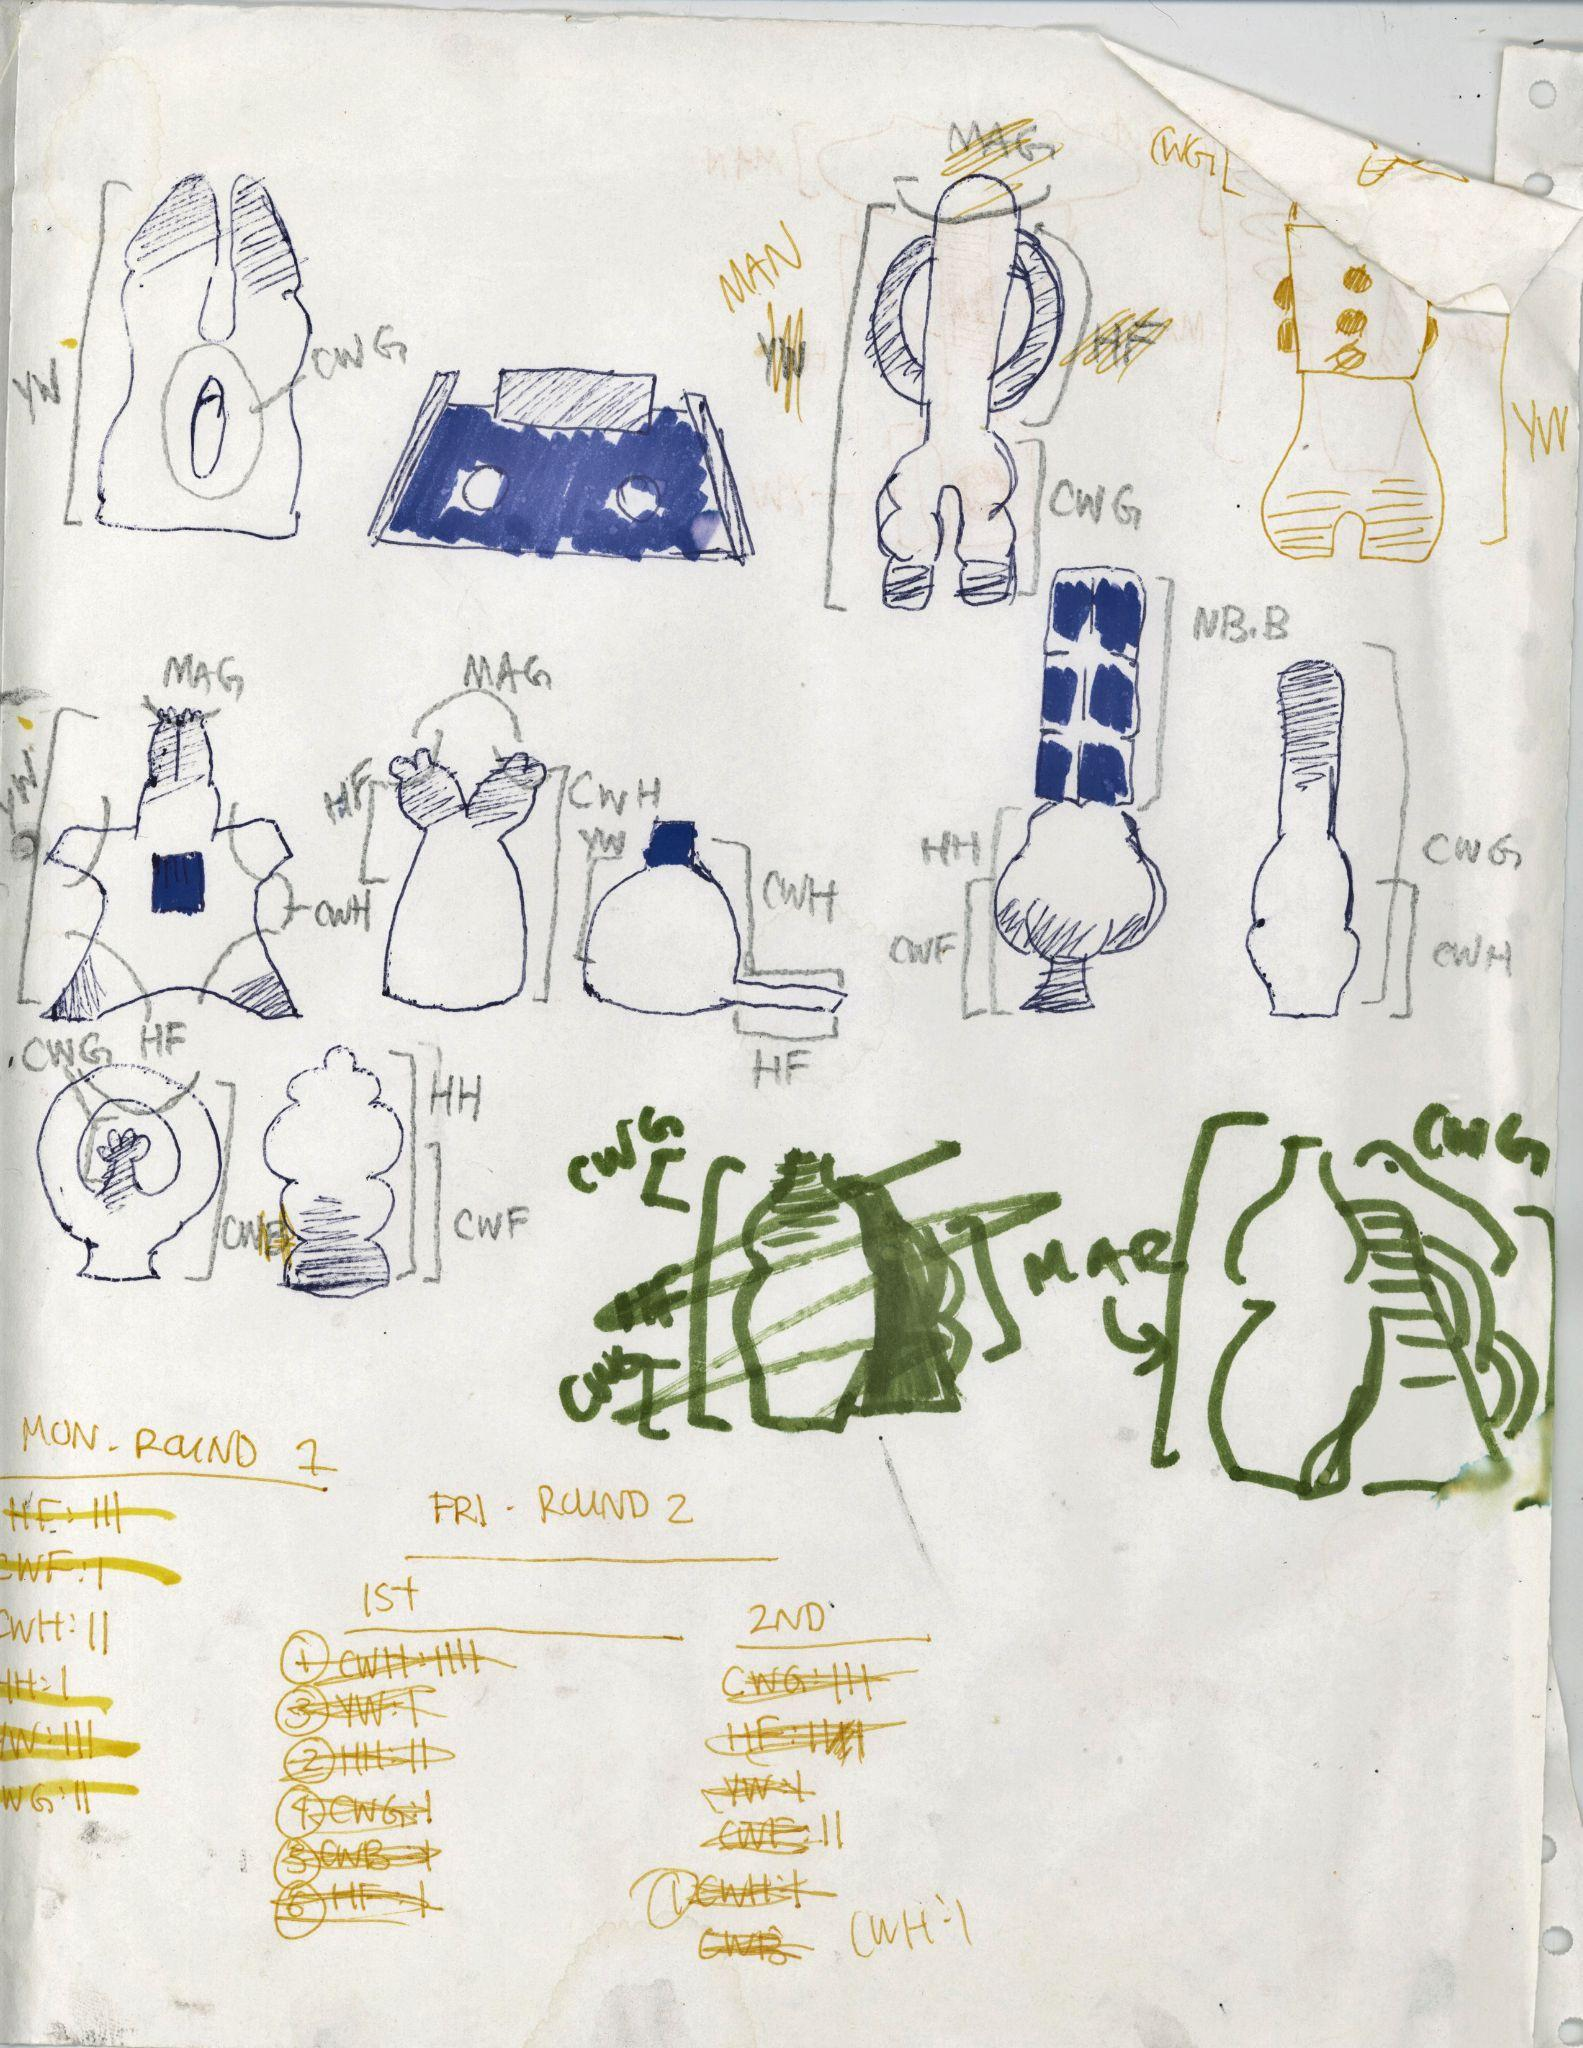 MAG
CWG
MAN
YW
CWG
YW
HF
YW
CWG
NB.B
MAG
MAG
YW
HF
CWH
YW
CWH
HH
CWG
CWH
CWF
CWH
HF
CWG
HF
HH
CWF
CWG
CWG
HF
MAR
CWG
MON-ROUND 1
HF:III
CWF:I
CWH:II
HH:I
YW:III
WG:II
FRI-ROUND 2
1ST
① CWH:IIII
③ YW:I
② HH:II
④ CWG:I
⑤ CWB:I
⑥ HF:I
2ND
CWG:III
HF:IIII
YW:I
CWF:II
① CWH:I
CWB
CWH:I